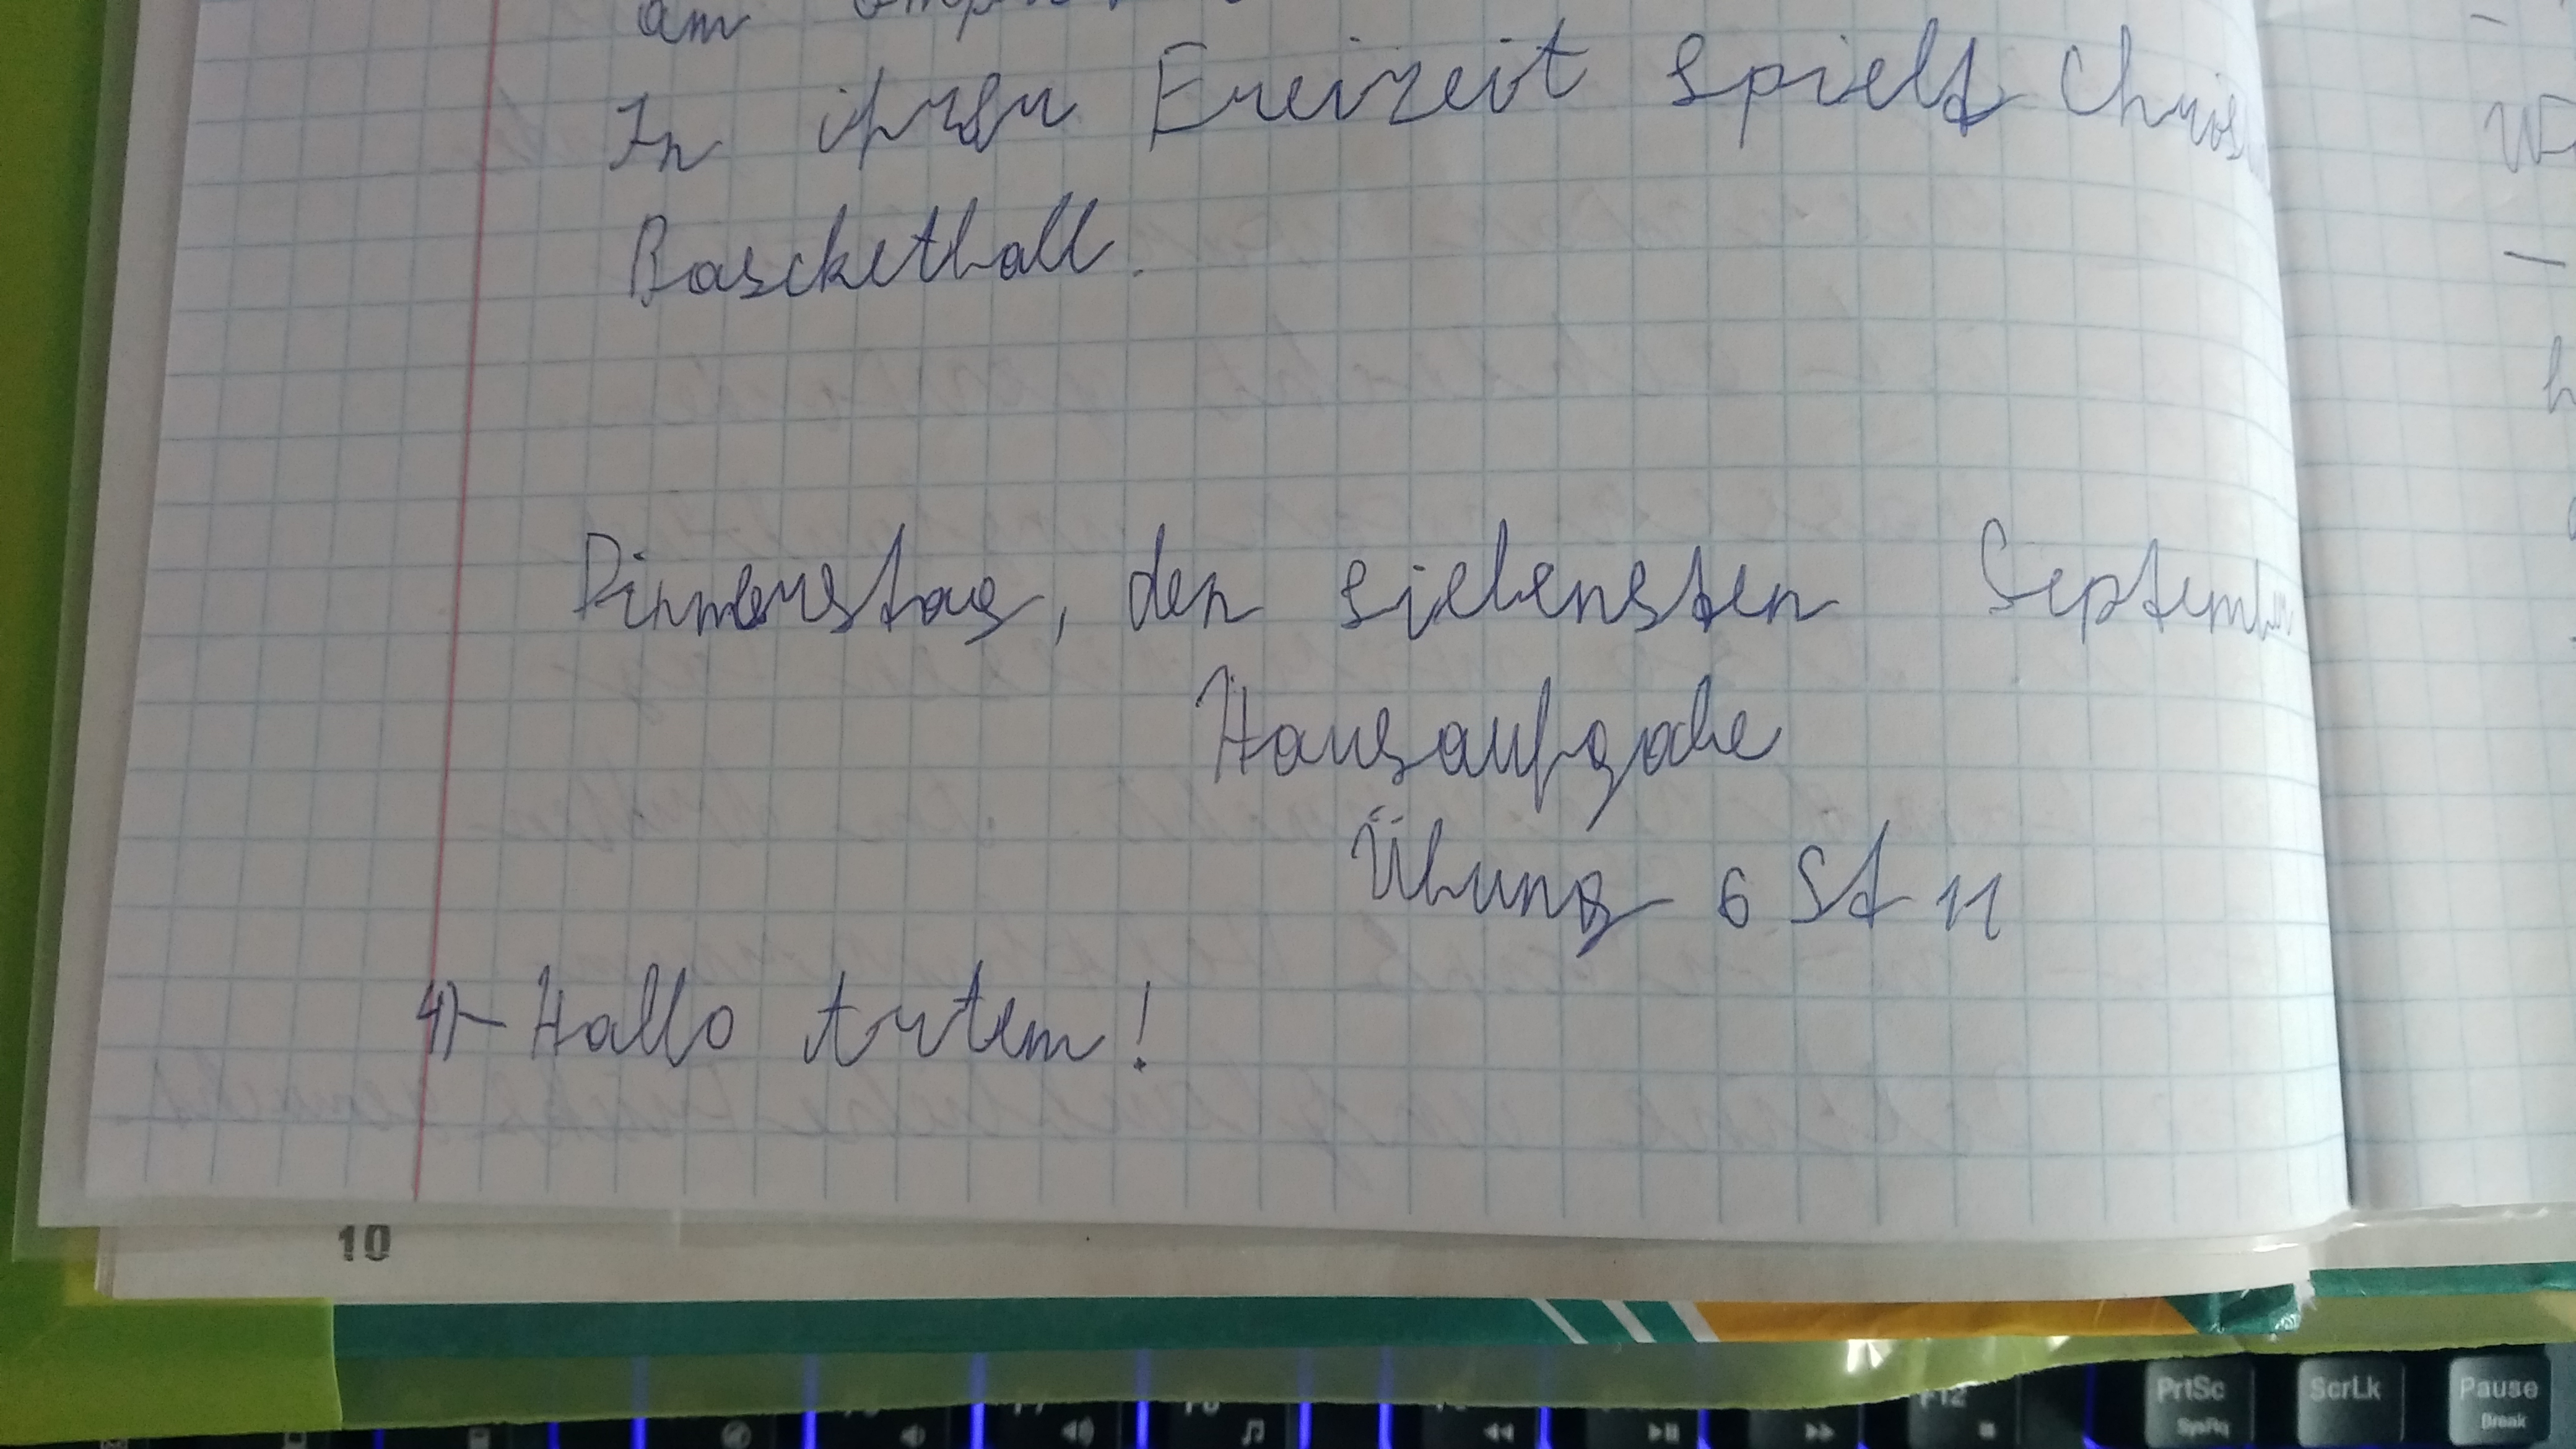 am
In ihrer Freizeit spielt Chris
Bascketball.
Dinnerstag, den siebensten September
Hausaufgabe
Übung 6 St 11
4)- Hallo Artem!
10
PrtSc
SysRq
ScrLk
Pause
Break
F12